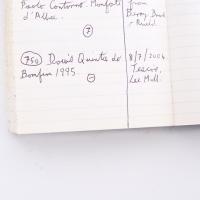 Paolo Conterno. Monforte
d'Alba.
7
from
Berry Bros
& Rudd.
750 Dow's Quinta do
Bomfim 1995.
8/7/2004
Tesco,
Lee Mill.